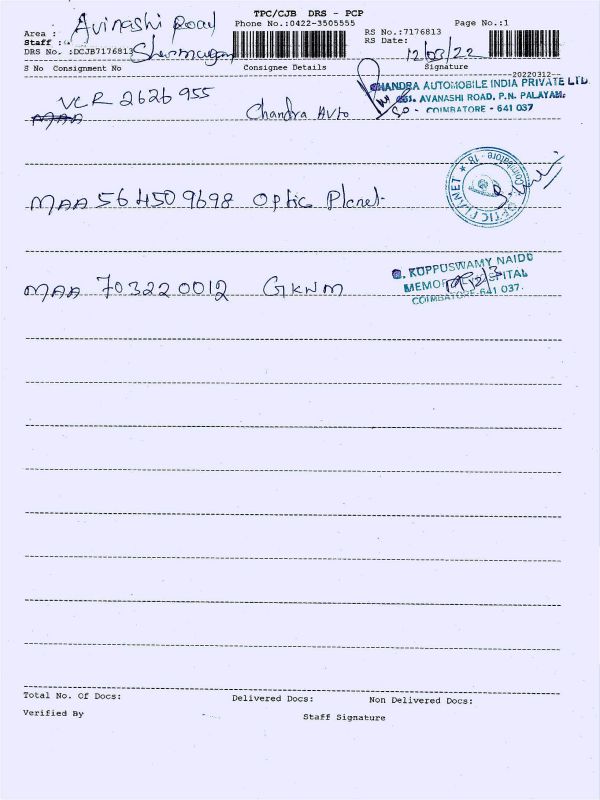 TPC/CJB DRS - PCP
Phone No.:0422-3505555
Page No.:1
Area : Avinashi Road
RS No.:7176813
Staff :
RS Date: 12/03/22
DRS No. :DCJB7176813
Signature
20220312
S No Consignment No Consignee Details
VCR 2626 955 Chandra Auto
MAA
CHANDRA AUTOMOBILE INDIA PRIVATE LTD.
AVANASHI ROAD, P.N. PALAYAM,
COIMBATORE - 641 037
MAA 564509698 Optic Planet
OPTIC PLANET Coimbatore - 18
MAA 703220012 GKNM
G. KUPPUSWAMY NAIDU
MEMORIAL HOSPITAL
COIMBATORE-641 037.
Total No. Of Docs: Delivered Docs: Non Delivered Docs:
Verified By Staff Signature